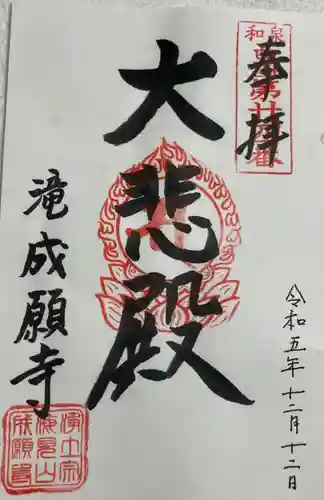 奉拝
大悲殿
滝成願寺
令和五年十二月十二日
浄土宗
海見山
成願寺